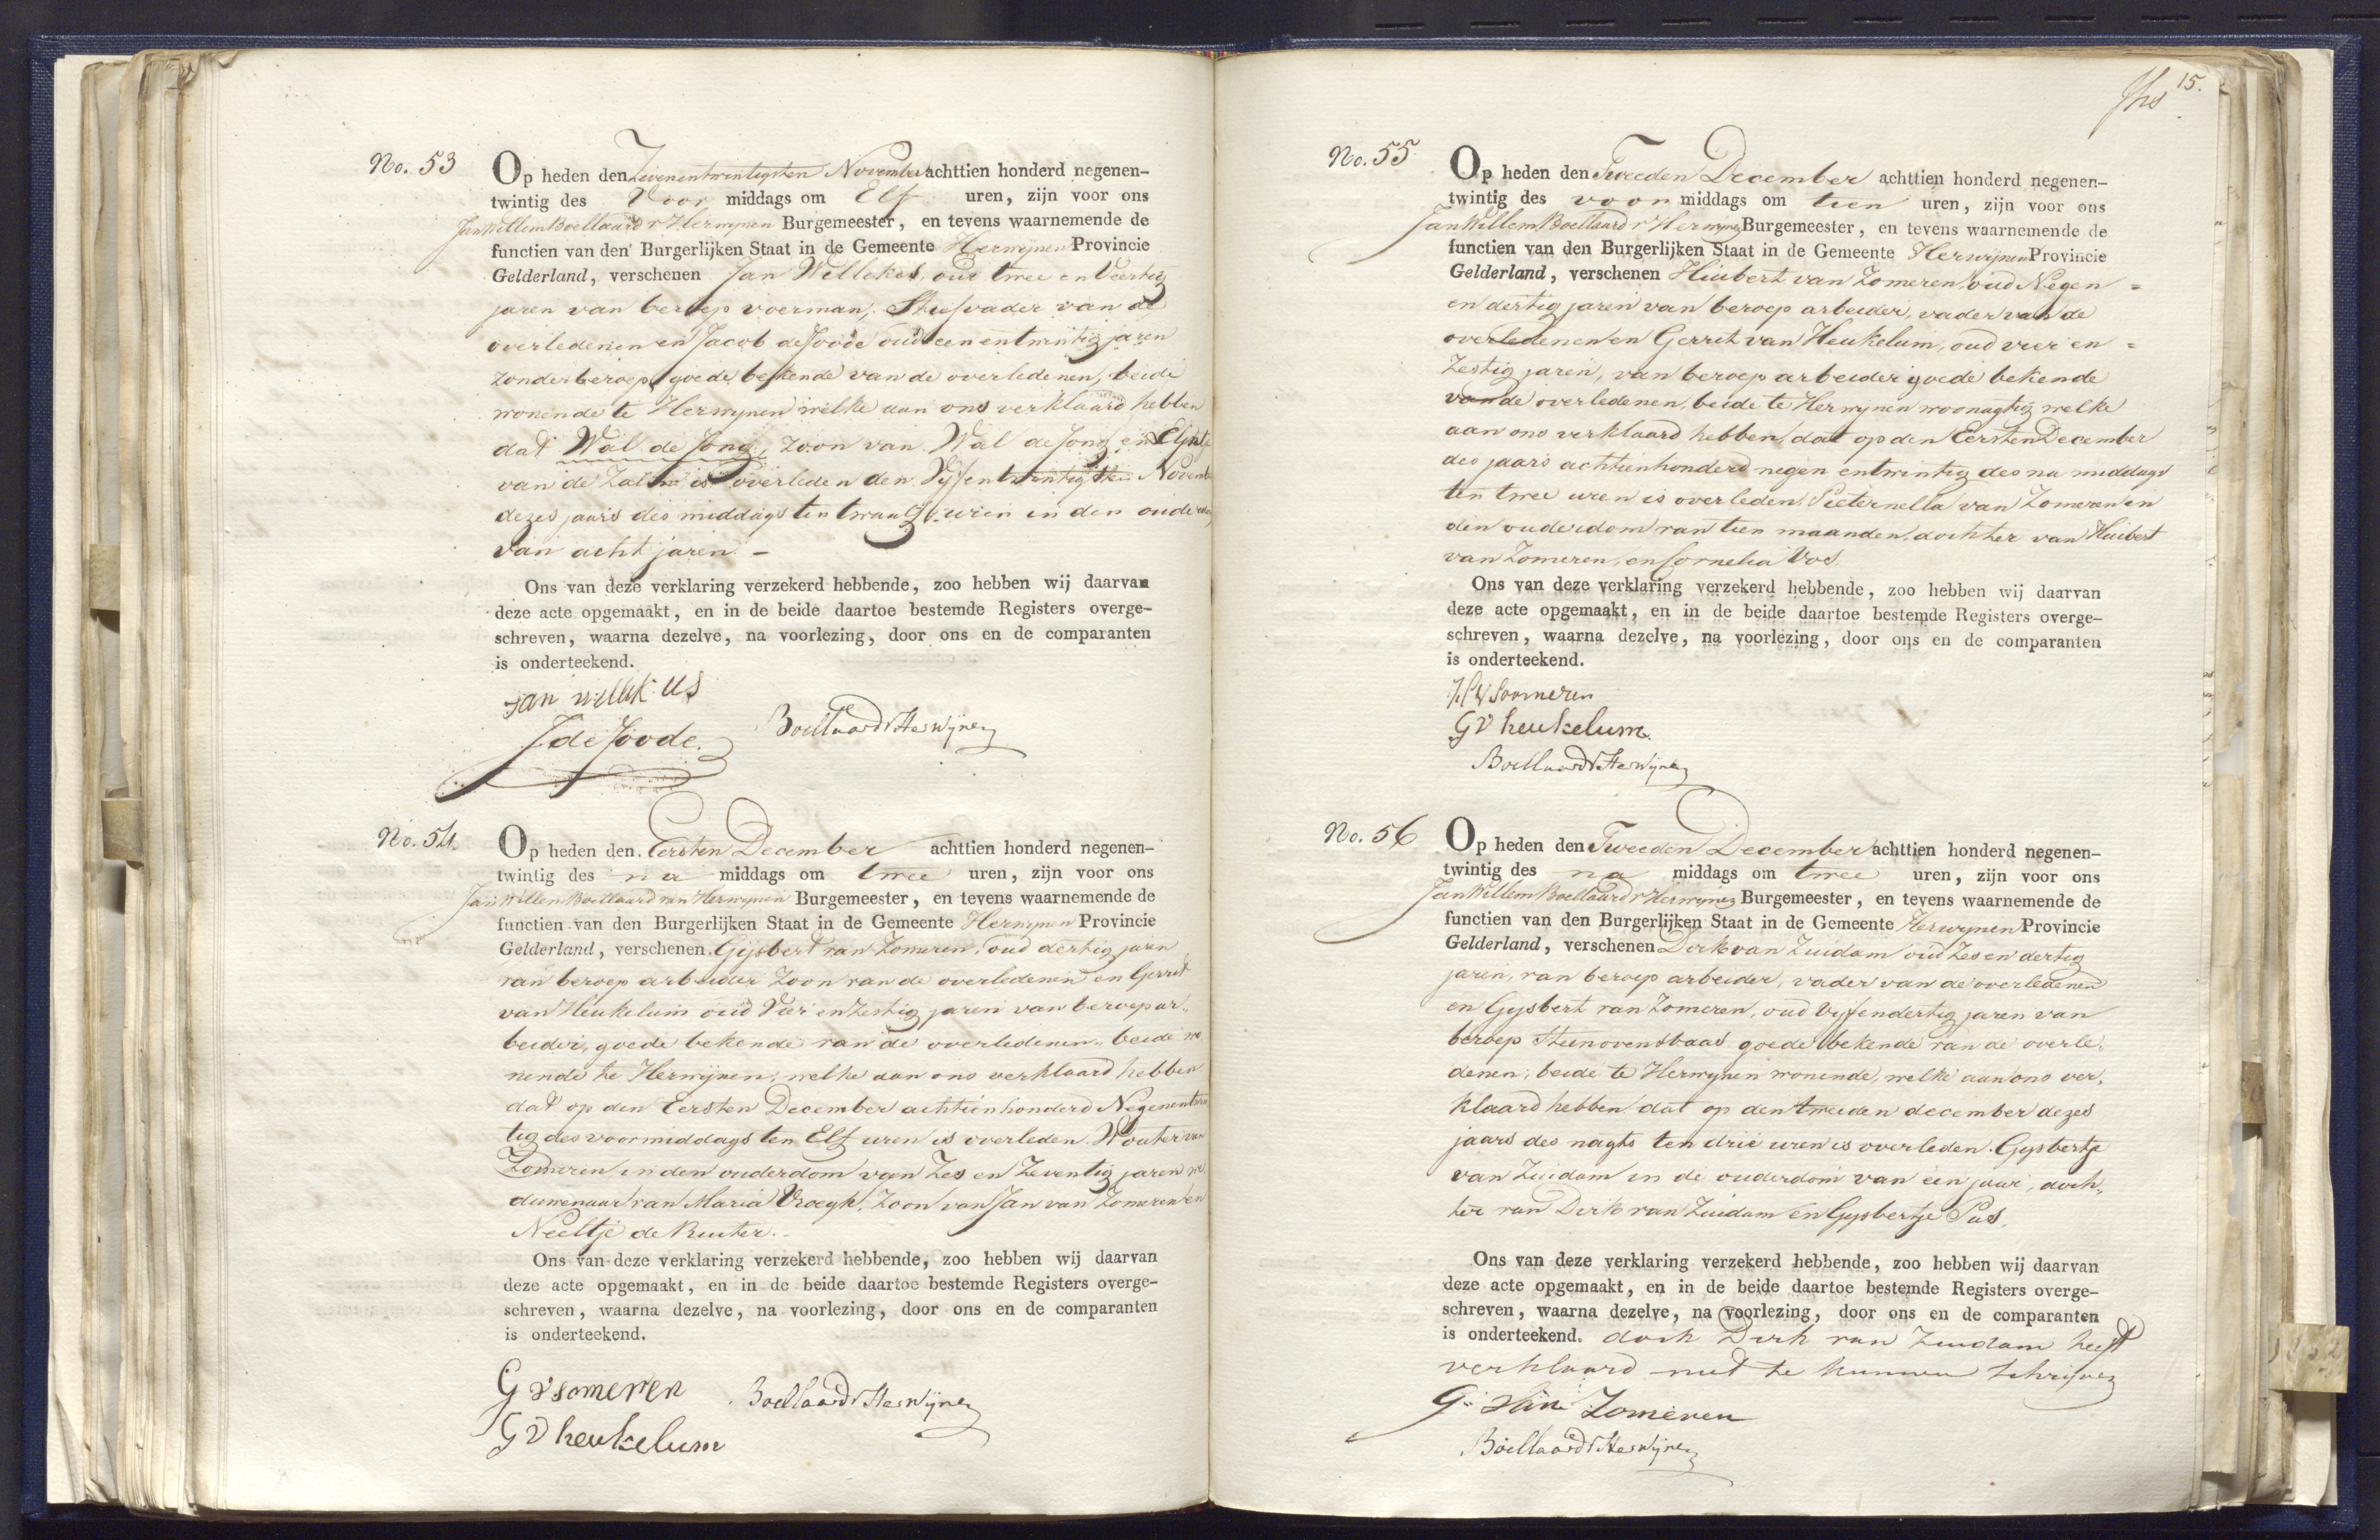 No. 53
Op heden den Zevenentwintigsten November achttien honderd negenen-
twintig des Voor middags om Elf uren, zijn voor ons
Jan Willem Boellaard v Herwynen Burgemeester, en tevens waarnemende de
functien van den Burgerlijken Staat in de Gemeente Herwynen Provincie
Gelderland, verschenen Jan Willekes, oud twee en Veertig
jaren van beroep voerman, Stiefvader van de
overledenen en Jacob de Joode oud een entwintig jaren
zonder beroep, goede bekende van de overledenen, beide
wonende te Herwynen welke aan ons verklaard hebben
dat Wal de Jong, zoon van Wal de Jong en
van de Zalm is overleden den Vyfentwintigsten Novemb
dezes jaars des middags ten twaalf uren in den ouderdom
van acht jaren. -
Ons van deze verklaring verzekerd hebbende, zoo hebben wij daarvan
deze acte opgemaakt, en in de beide daartoe bestemde Registers overge-
schreven, waarna dezelve, na voorlezing, door ons en de comparanten
is onderteekend.
Jan willekes
J de Joode.
Boellaard v Herwijnen
No. 54.
Op heden den Eersten December achttien honderd negenen-
twintig des na middags om twee uren, zijn voor ons
Jan Willem Boellaard van Herwynen Burgemeester, en tevens waarnemende de
functien van den Burgerlijken Staat in de Gemeente Herwynen Provincie
Gelderland, verschenen Gijsbert van Zomeren, oud dertig jaren
van beroep arbeider Zoon van de overledenen en Gerrit
van Heukelum oud Vier en Zestig jaren van beroep ar-
beider, goede bekende van de overledenen, beide wo
nende te Herwijnen, welke aan ons verklaard hebben
dat op den Eersten December achtienhonderd Negenentwin
tig des voormiddags ten Elf uren is overleden Wouter van
Zomeren in den ouderdom van Zes en Zeventig jaren we
duwenaar van Maria Vroegh, Zoon van Jan van Zomeren en
Neeltje de Ruiter.
Ons van deze verklaring verzekerd hebbende, zoo hebben wij daarvan
deze acte opgemaakt, en in de beide daartoe bestemde Registers overge-
schreven, waarna dezelve, na voorlezing, door ons en de comparanten
is onderteekend.
G v someren
Boellaard v Herwijnen
G v heukelum
15.
No. 55
Op heden den Tweeden December achttien honderd negenen-
twintig des voor middags om tien uren, zijn voor ons
Jan Willem Boellaard v Herwijnen Burgemeester, en tevens waarnemende de
functien van den Burgerlijken Staat in de Gemeente Herwijnen Provincie
Gelderland, verschenen Huibert van Zomeren, oud Negen =
en dertig jaren van beroep arbeider, vader van de
overledenen en Gerrit van Heukelum, oud vier en =
Zestig jaren, van beroep arbeider goede bekende
van de overledenen, beide te Herwynen woonagtig welke
aan ons verklaard hebben, dat op den Eersten December
des jaars achtienhonderd negen entwintig des na middags
ten twee uren is overleden, Pieternella van Zomeren in
den ouderdom van tien maanden, dochter van Huibert
van Zomeren, en Cornelia Vos.
Ons van deze verklaring verzekerd hebbende, zoo hebben wij daarvan
deze acte opgemaakt, en in de beide daartoe bestemde Registers overge-
schreven, waarna dezelve, na voorlezing, door ons en de comparanten
is onderteekend.
H v Soomeren
G v heukelum.
Boellaard v Herwijnen
No. 56
Op heden den Tweeden December achttien honderd negenen-
twintig des na middags om twee uren, zijn voor ons
Jan Willem Boellaard v Herwijnen Burgemeester, en tevens waarnemende de
functien van den Burgerlijken Staat in de Gemeente Herwynen Provincie
Gelderland, verschenen Dirk van Zuidam oud Zes en dertig
jaren, van beroep arbeider, vader van de overledenen
en Gysbert van Zomeren, oud Vijfendertig jaren van
beroep Steenovensbaas goede bekende van de overle-
denen, beide te Herwynen wonende, welke aan ons ver-
klaard hebben dat op den tweeden december dezes
jaars des nagts ten drie uren is overleden Gysbertje
van Zuidam in de ouderdom van een jaar, doch-
ter van Dirk van Zuidam en Gysbertje Pas.
Ons van deze verklaring verzekerd hebbende, zoo hebben wij daarvan
deze acte opgemaakt, en in de beide daartoe bestemde Registers overge-
schreven, waarna dezelve, na voorlezing, door ons en de comparanten
is onderteekend. doch Dirk van Zuidam heeft
verklaard niet te kunnen schrijven
G: van Zomeren
Boellaard v Herwijnen